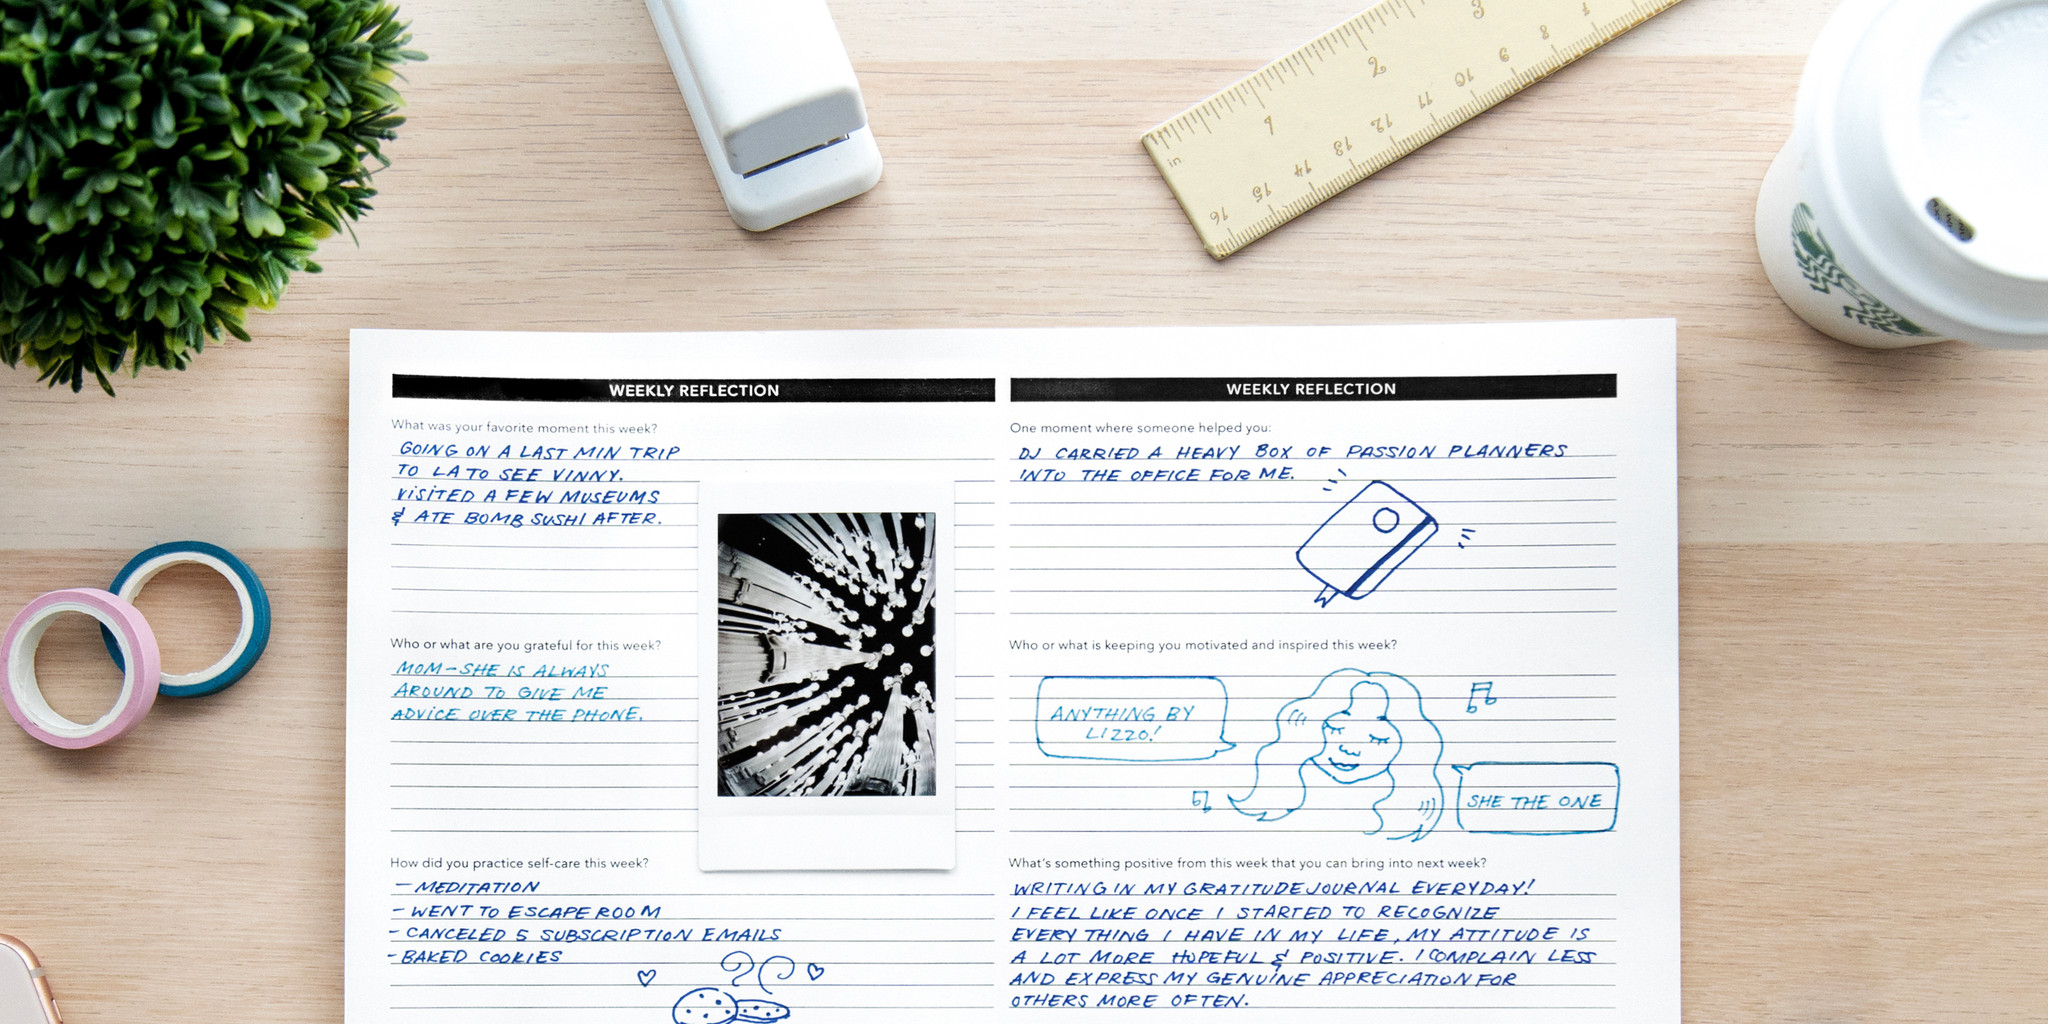 in
1
2
3
16
15
14
13
12
11
10
9
8
7
CAUTION
WEEKLY REFLECTION
What was your favorite moment this week?
GOING ON A LAST MIN TRIP
TO LA TO SEE VINNY.
VISITED A FEW MUSEUMS
& ATE BOMB SUSHI AFTER.
Who or what are you grateful for this week?
MOM - SHE IS ALWAYS
AROUND TO GIVE ME
ADVICE OVER THE PHONE.
How did you practice self-care this week?
- MEDITATION
- WENT TO ESCAPE ROOM
- CANCELED 5 SUBSCRIPTION EMAILS
- BAKED COOKIES
WEEKLY REFLECTION
One moment where someone helped you:
DJ CARRIED A HEAVY BOX OF PASSION PLANNERS
INTO THE OFFICE FOR ME.
Who or what is keeping you motivated and inspired this week?
ANYTHING BY
LIZZO!
SHE THE ONE
What's something positive from this week that you can bring into next week?
WRITING IN MY GRATITUDE JOURNAL EVERYDAY!
I FEEL LIKE ONCE I STARTED TO RECOGNIZE
EVERYTHING I HAVE IN MY LIFE, MY ATTITUDE IS
A LOT MORE HOPEFUL & POSITIVE. I COMPLAIN LESS
AND EXPRESS MY GENUINE APPRECIATION FOR
OTHERS MORE OFTEN.